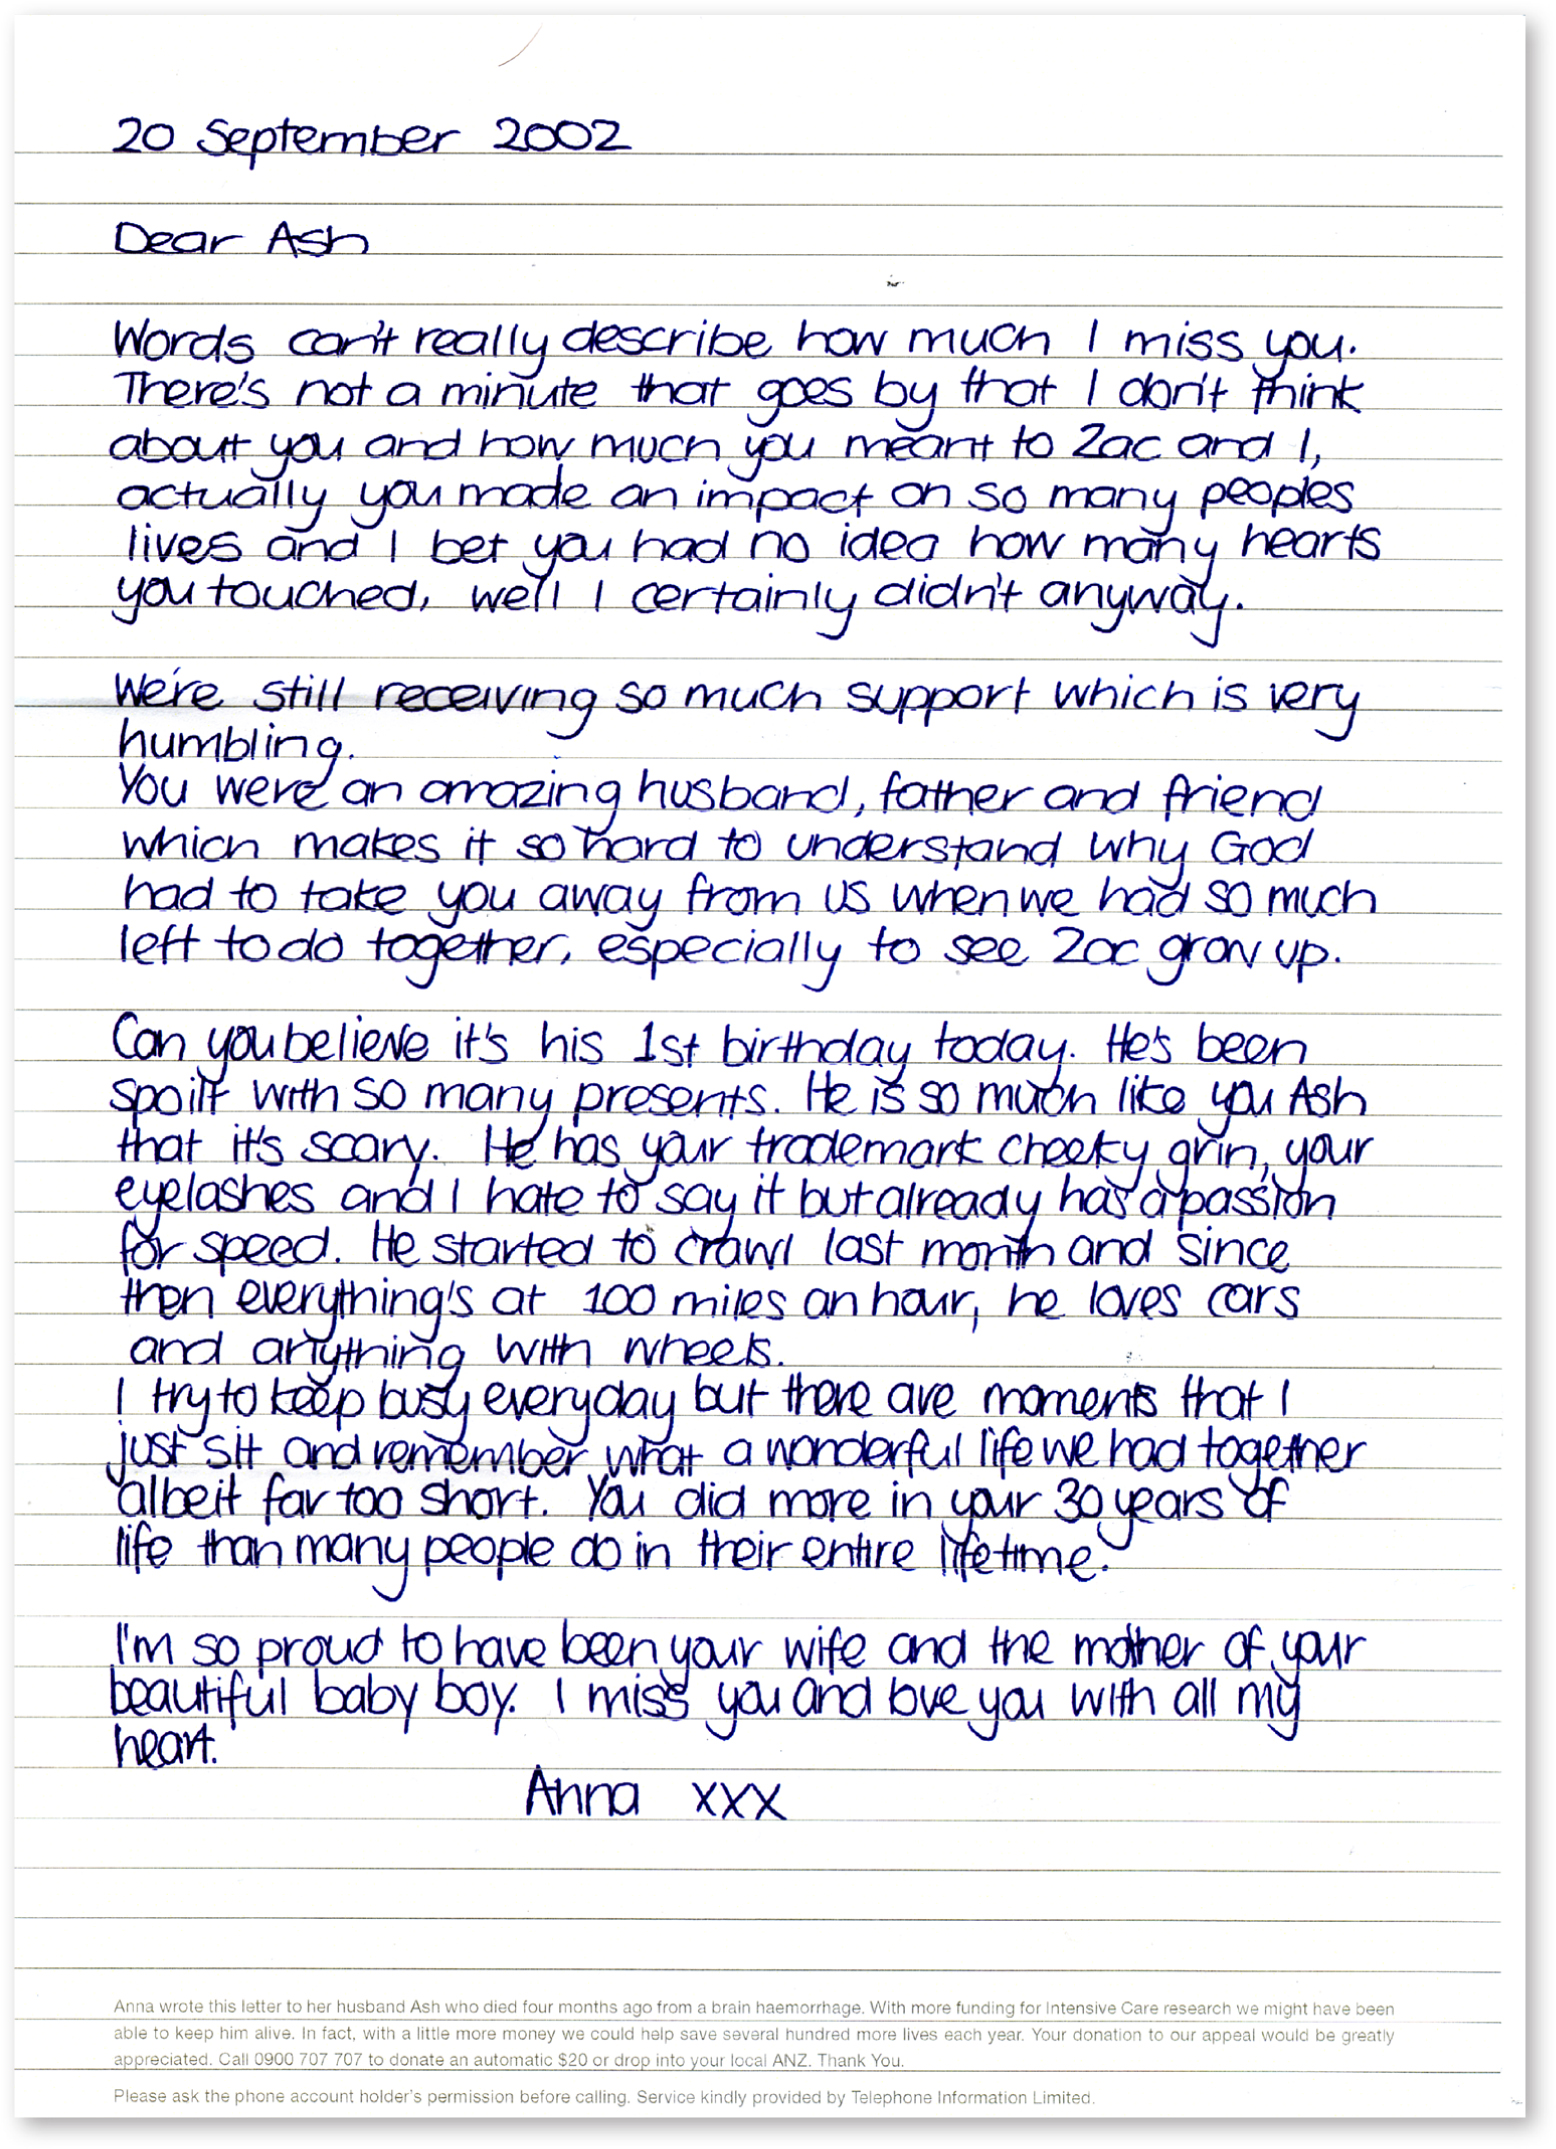 20 September 2002
Dear Ash
Words can't really describe how much I miss you.
There's not a minute that goes by that I don't think
about you and how much you meant to Zac and I,
actually you made an impact on so many peoples
lives and I bet you had no idea how many hearts
you touched, well I certainly didn't anyway.
We're still receiving so much support which is very
humbling.
You were an amazing husband, father and friend
which makes it so hard to understand why God
had to take you away from us when we had so much
left to do together, especially to see Zac grow up.
Can you believe it's his 1st birthday today. He's been
spoilt with so many presents. He is so much like you Ash
that it's scary. He has your trademark cheeky grin, your
eyelashes and I hate to say it but already has a passion
for speed. He started to crawl last month and since
then everything's at 100 miles an hour, he loves cars
and anything with wheels.
I try to keep busy everyday but there are moments that I
just sit and remember what a wonderful life we had together
albeit far too short. You did more in your 30 years of
life than many people do in their entire lifetime.
I'm so proud to have been your wife and the mother of your
beautiful baby boy. I miss you and love you with all my
heart.
Anna xxx
Anna wrote this letter to her husband Ash who died four months ago from a brain haemorrhage. With more funding for Intensive Care research we might have been
able to keep him alive. In fact, with a little more money we could help save several hundred more lives each year. Your donation to our appeal would be greatly
appreciated. Call 0900 707 707 to donate an automatic $20 or drop into your local ANZ. Thank You.
Please ask the phone account holder's permission before calling. Service kindly provided by Telephone Information Limited.